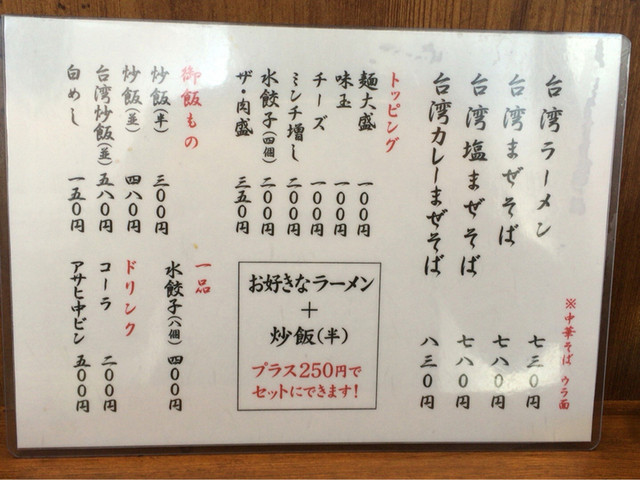 ※中華そば ウラ面
台湾ラーメン 七三〇円
台湾まぜそば 七八〇円
台湾塩まぜそば 七八〇円
台湾カレーまぜそば 八三〇円
トッピング
麺大盛 一〇〇円
味玉 一〇〇円
チーズ 一〇〇円
ミンチ増し 二〇〇円
水餃子(四個) 二〇〇円
ザ・肉盛 三五〇円
御飯もの
炒飯(半) 三〇〇円
炒飯(並) 四八〇円
台湾炒飯(並) 五八〇円
白めし 一五〇円
お好きなラーメン
+
炒飯(半)
プラス250円で
セットにできます!
一品
水餃子(八個) 四〇〇円
ドリンク
コーラ 二〇〇円
アサヒ中ビン 五〇〇円